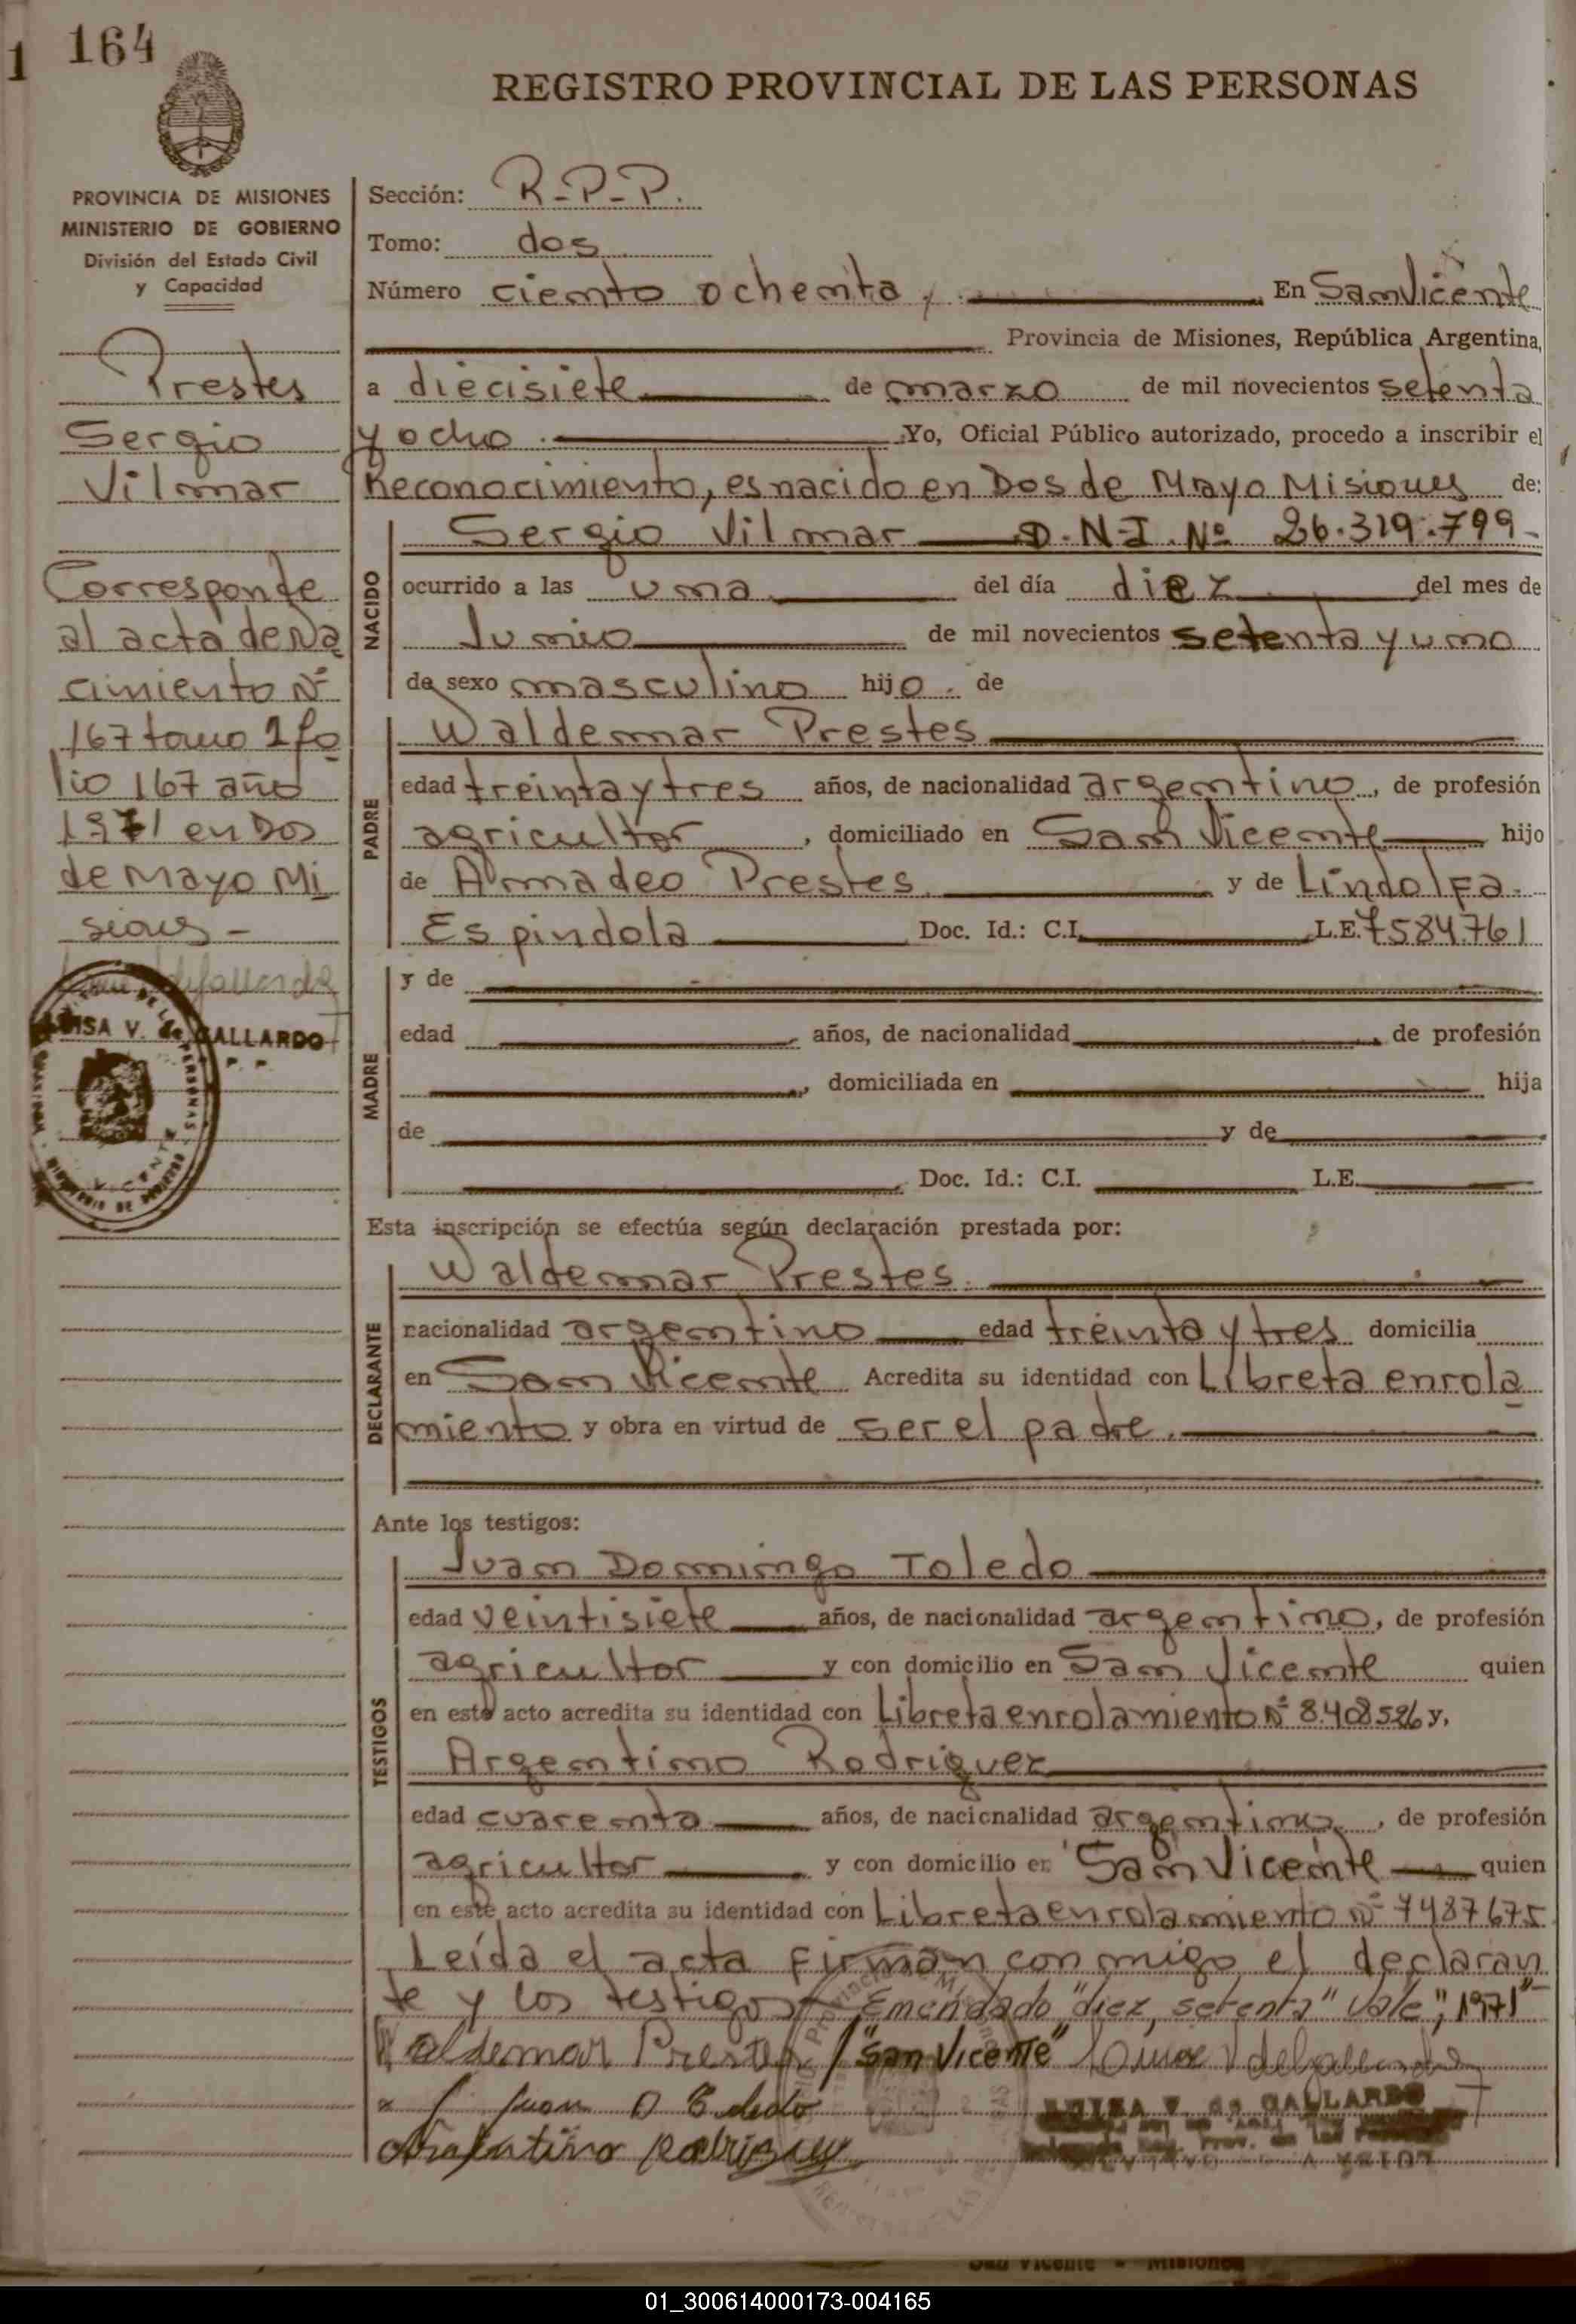 1 164
REGISTRO PROVINCIAL DE LAS PERSONAS
PROVINCIA DE MISIONES
MINISTERIO DE GOBIERNO
División del Estado Civil
y Capacidad
Prestes
Sergio
Vilmar
Corresponde
al acta de Na
cimiento Nº
167 tomo 1 fo
lio 167 año
1971 en Dos
de Mayo Mi
siones -
LUISA V. de GALLARDO
Sección: R-P-P.
Tomo: dos
Número ciento ochenta, En San Vicente
Provincia de Misiones, República Argentina,
a diecisiete de marzo de mil novecientos setenta
y ocho. Yo, Oficial Público autorizado, procedo a inscribir el
Reconocimiento, es nacido en Dos de Mayo Misiones de:
NACIDO
Sergio Vilmar D.N.I. Nº 26.319.799-
ocurrido a las una del día diez del mes de
Junio de mil novecientos setenta y uno
de sexo masculino hijo. de
PADRE
Waldemar Prestes
edad treinta y tres años, de nacionalidad argentino, de profesión
agricultor, domiciliado en San Vicente hijo
de Amadeo Prestes y de Lindolfa
Espindola Doc. Id.: C.I. L.E. 7584761
MADRE
y de
edad años, de nacionalidad de profesión
, domiciliada en hija
de y de
Doc. Id.: C.I. L.E.
Esta inscripción se efectúa según declaración prestada por:
DECLARANTE
Waldemar Prestes.
nacionalidad argentino edad treinta y tres domicilia
en San Vicente Acredita su identidad con Libreta enrola
miento y obra en virtud de ser el padre.
Ante los testigos:
TESTIGOS
Juan Domingo Toledo
edad veintisiete años, de nacionalidad argentino, de profesión
agricultor y con domicilio en San Vicente quien
en este acto acredita su identidad con Libreta enrolamiento Nº 8.408526 y,
Argentino Rodriguez
edad cuarenta años, de nacionalidad argentino, de profesión
agricultor y con domicilio en San Vicente quien
en este acto acredita su identidad con Libreta enrolamiento Nº 7487675
Leída el acta firman con migo el declaran
te y los testigos Emendado "diez, setenta" Vale", 1971"
Waldemar Prestes / "San Vicente"
Juan D Toledo
Argentino Rodriguez
LUISA V. de GALLARDO
San Vicente - Misiones
01_300614000173-004165